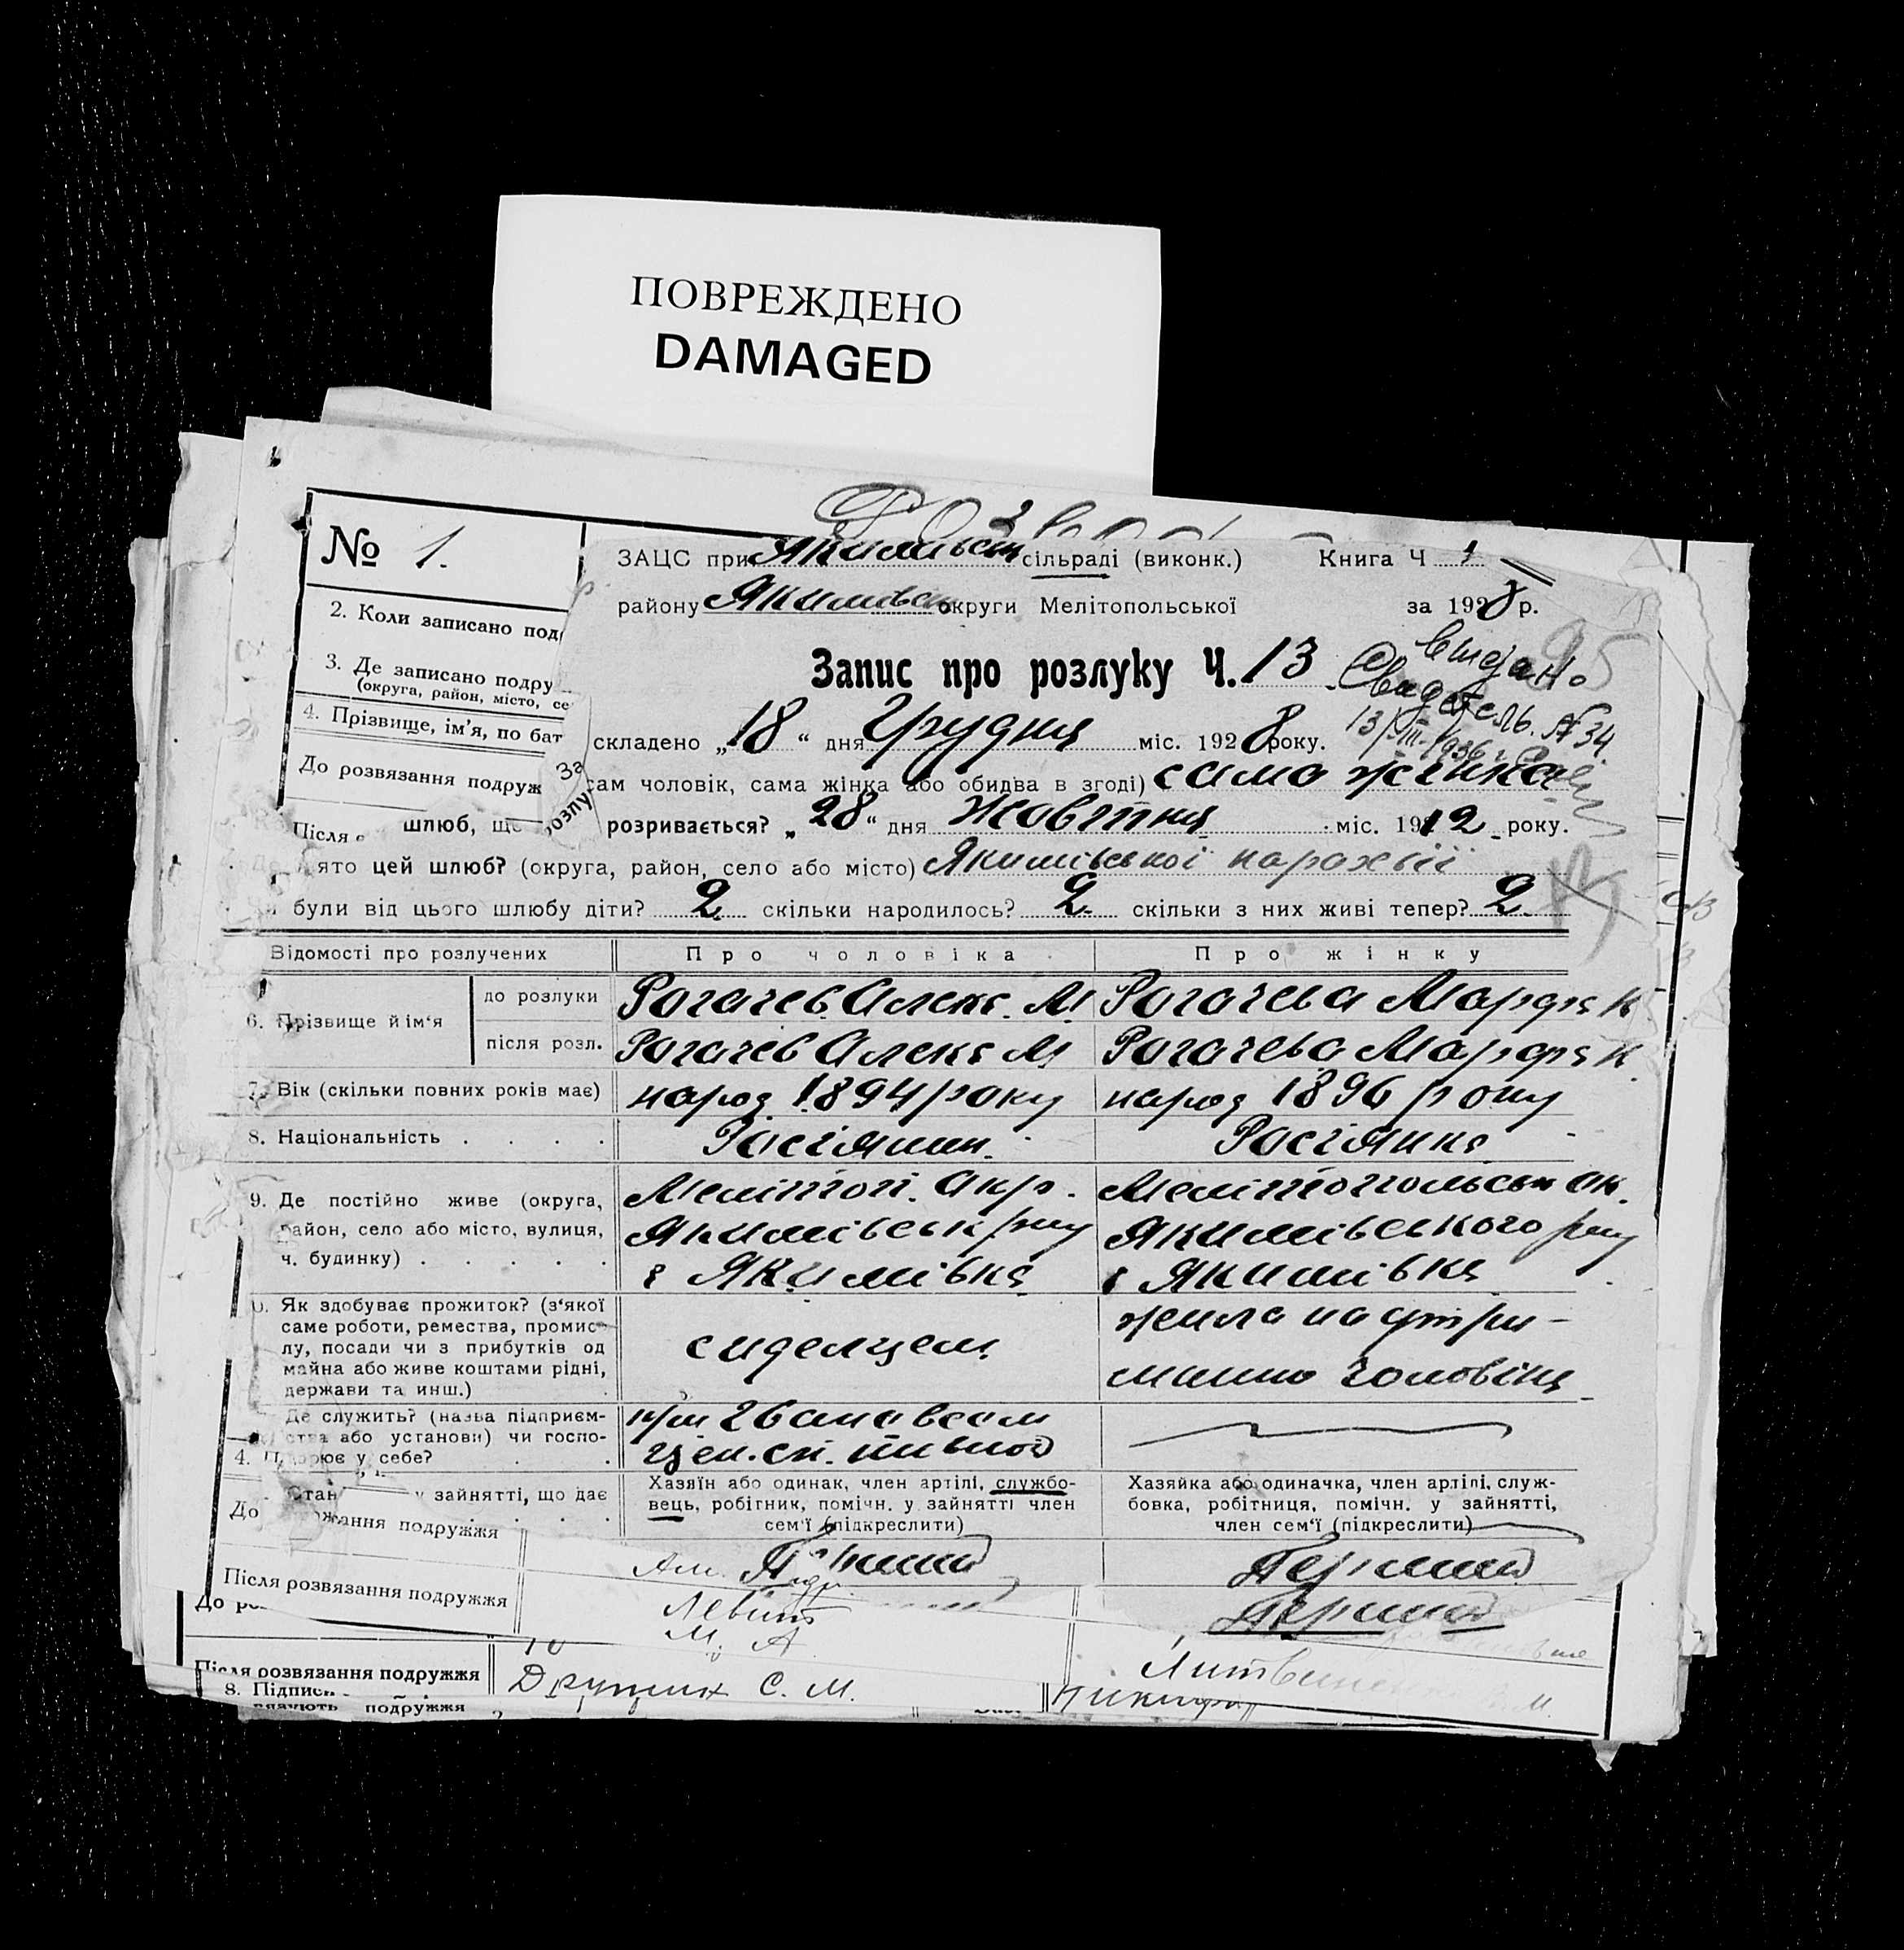 ПОВРЕЖДЕНО
DAMAGED
№ 1.
2. Коли записано под
3. Де записано подру
(округа, район, місто, се
4. Прізвище, ім'я, по бат
До розвязання подруж
Після
ЗАЦС при Якимівськ сільраді (виконк.) Книга Ч 1
району Якимівськ округи Мелітопольської за 1928 р.
Запис про розлуку Ч. 13
видано
Свидетель. № 34
13/III-1936 г.
складено „18“ дня Грудня міс. 1928 року.
За
сам чоловік, сама жінка або обидва в згоді) сама жінка
розлу
шлюб, що розривається? „28“ дня Жовтня міс. 1912 року.
ято цей шлюб? (округа, район, село або місто) Якимівської парохвії
и були від цього шлюбу діти? 2 скільки народилось? 2 скільки з них живі тепер? 2
Відомості про розлучених Про чоловіка Про жінку
6. Прізвище й ім'я до розлуки Рогачев Алекс. М. Рогачева Марфа К
після розл. Рогачев Алекс М Рогачева Марфа К.
7. Вік (скільки повних років має) народ 1894 року народ 1896 року
8. Національність Росіянин. Росіянка
9. Де постійно живе (округа, район, село або місто, вулиця, ч. будинку)
Меліттоп. Окр. Мелітопольськ ок.
Якимівськ р-ну Якимівського р-ну
с Якимівка с Якимівка
Як здобуває прожиток? (з'якої
саме роботи, ремества, промис-
лу, посади чи з прибутків од
майна або живе коштами рідні,
держави та инш.)
сиделцем
жила на утри-
манню чоловіка
Де служить? (назва підприєм-
ства або установи) чи госпо-
рює у себе?
4. П
Стан у зайнятті, що дає
Хазяїн або одинак, член артілі, службо-
вець, робітник, помічн. у зайнятті член
сем'ї (підкреслити)
Хазяйка або одиначка, член артілі, служ-
бовка, робітниця, помічн. у зайнятті,
член сем'ї (підкреслити)
До жання подружжя
Перший
Перший
Після розвязання подружжя
Левит
М. А
Перший
До ро
Після розвязання подружжя Друпих С. М.
8. Підписи
подружжя